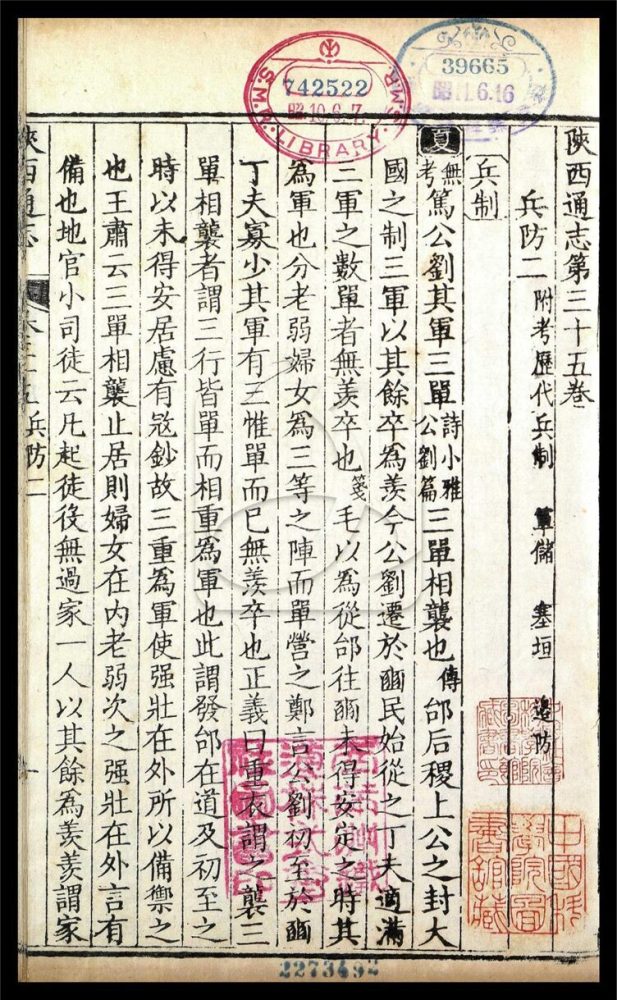 742522
昭10.6.7
S.M.R. LIBRARY
39665
昭11.6.16
陝西通志第三十五卷
兵防二 附考歷代兵制 軍儲 塞垣 邊防
兵制
夏 無考 篤公劉其軍三單 詩小雅公劉篇 三單相襲也 傳 邰后稷上公之封大
國之制三軍以其餘卒為羨今公劉遷於豳民始從之丁夫適滿
三軍之數單者無羨卒也 箋 毛以為從邰往豳未得安定之時其
為軍也分老弱婦女為三等之陣而單營之鄭言公劉初至於豳
丁夫寡少其軍有三惟單而已無羨卒也正義曰重衣謂之襲三
單相襲者謂三行皆單而相重為軍也此謂發邰在道及初至之
時以未得安居慮有寇鈔故三重為軍使强壯在外所以備禦之
也王肅云三單相襲止居則婦女在內老弱次之强壯在外言有
備也地官小司徒云凡起徒役無過家一人以其餘為羨羨謂家
陝西通志 卷三十五 兵防二 一
中國科學院圖書館藏
2273492